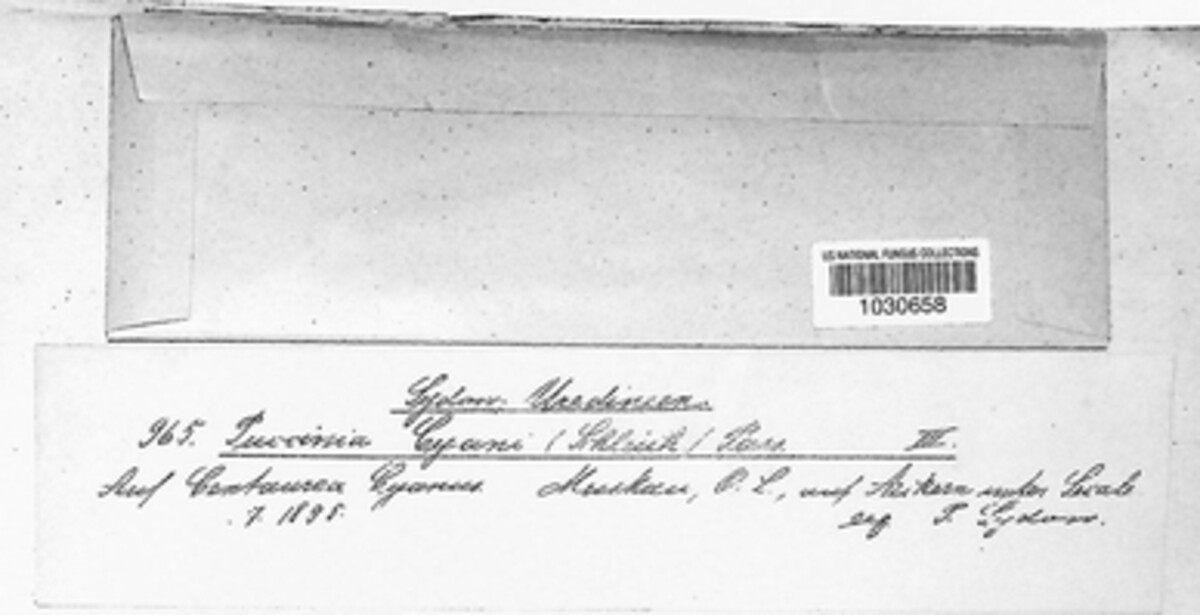 US NATIONAL FUNGUS COLLECTIONS
1030658
Sydow. Uredineen.
965. Puccinia Cyani (Schleich) Pass. III.
Auf Centaurea Cyanus Muskau, O. L., auf Aeckern unter Secale
. 7. 1895. leg P. Sydow.